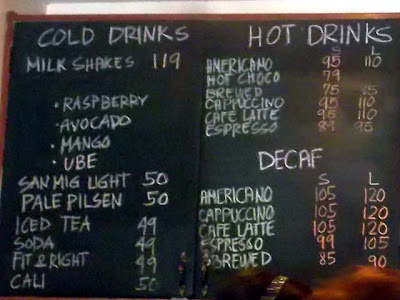 COLD DRINKS
MILK SHAKES 119
• RASPBERRY
• AVOCADO
• MANGO
• UBE
SAN MIG LIGHT 50
PALE PILSEN 50
ICED TEA 49
SODA 49
FIT & RIGHT 49
CALI 50
HOT DRINKS
S L
AMERICANO 95 110
HOT CHOCO 79
BREWED 75 85
CAPPUCCINO 95 110
CAFE LATTE 95 110
ESPRESSO 89 95
DECAF
S L
AMERICANO 105 120
CAPPUCCINO 105 120
CAFE LATTE 105 120
ESPRESSO 99 105
BREWED 85 90